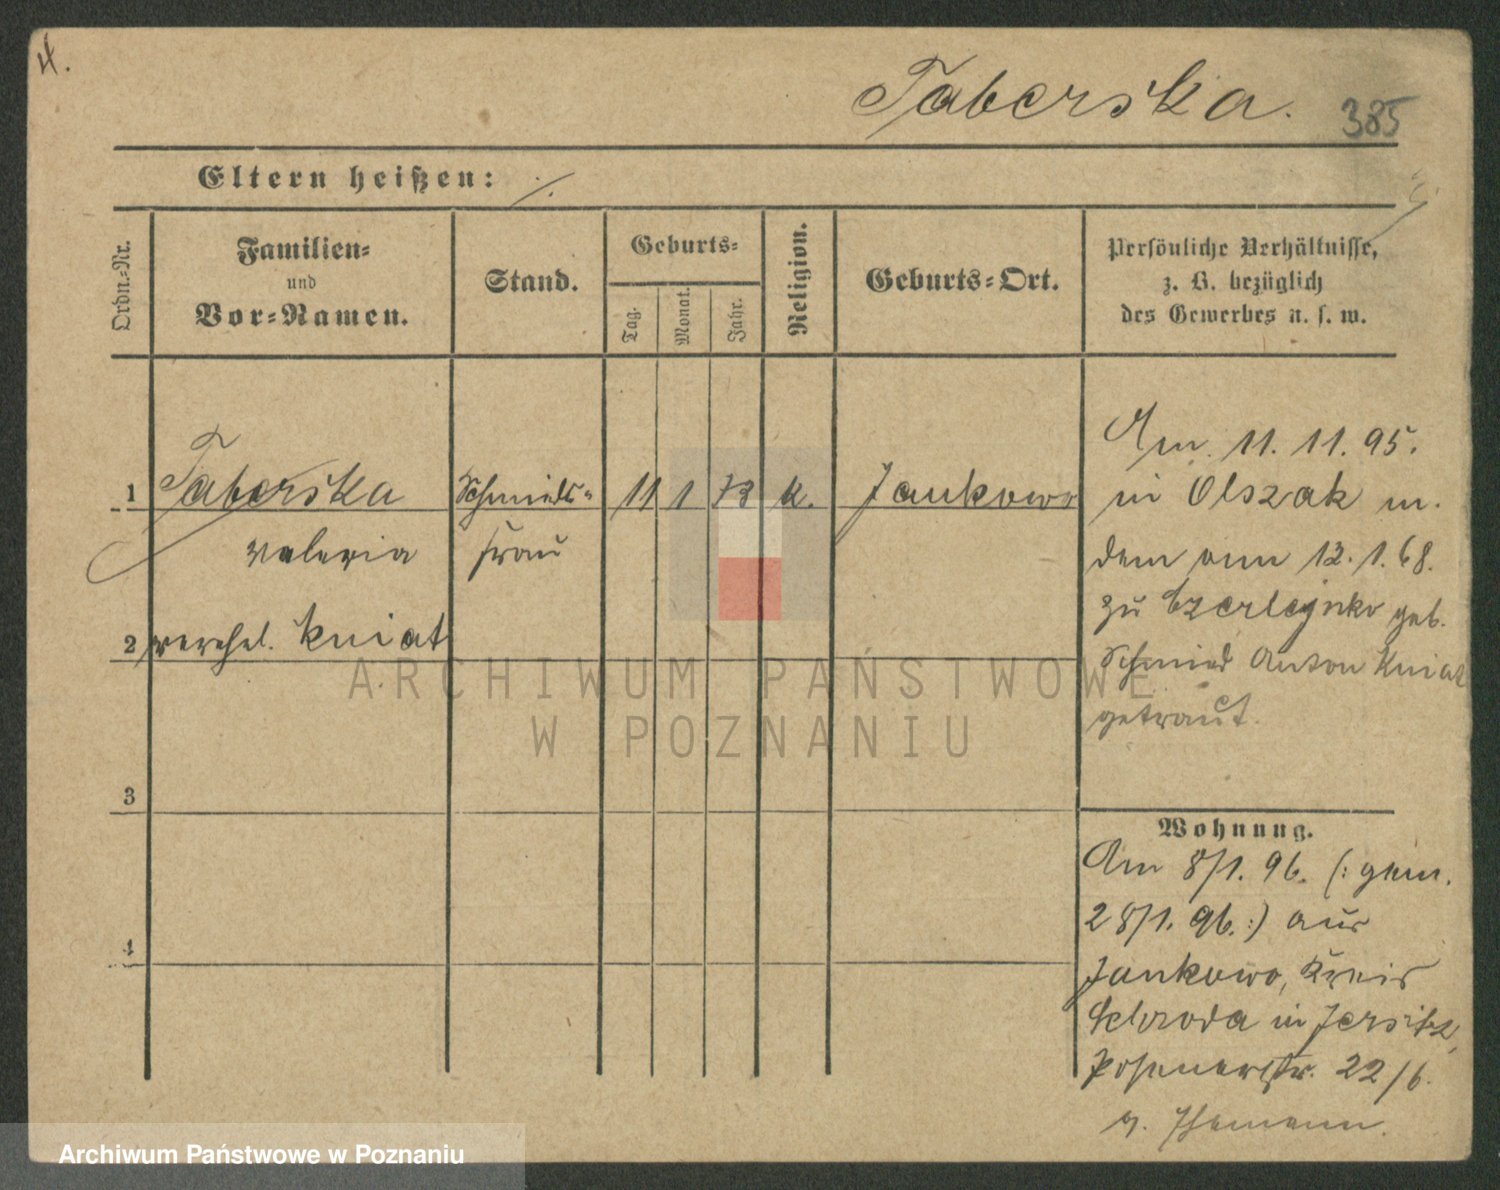 4.
Taberska. 385
Eltern heißen: ./.
Ordn.-Nr.
Familien-
und
Vor-Namen.
Stand.
Geburts-
Tag.
Monat.
Jahr.
Religion.
Geburts-Ort.
Persönliche Verhältnisse,
z. B. bezüglich
des Gewerbes u. s. w.
1 Taberska Schmieds- 11 1 73 k. Jankowo
Valeria frau
2 verehel. Kniat
3
4
Am 11. 11. 95.
in Olszak m.
dem am 12. 1. 68.
zu Czerlejnko geb.
Schmied Anton Kniat
getraut.
Wohnung.
Am 8/1. 96. (: gem.
28/1. 96. :) aus
Jankowo, Kreis
Schroda in Jersitz,
Posenerstr. 22/6.
ARCHIWUM PAŃSTWOWE
W POZNANIU
Archiwum Państwowe w Poznaniu